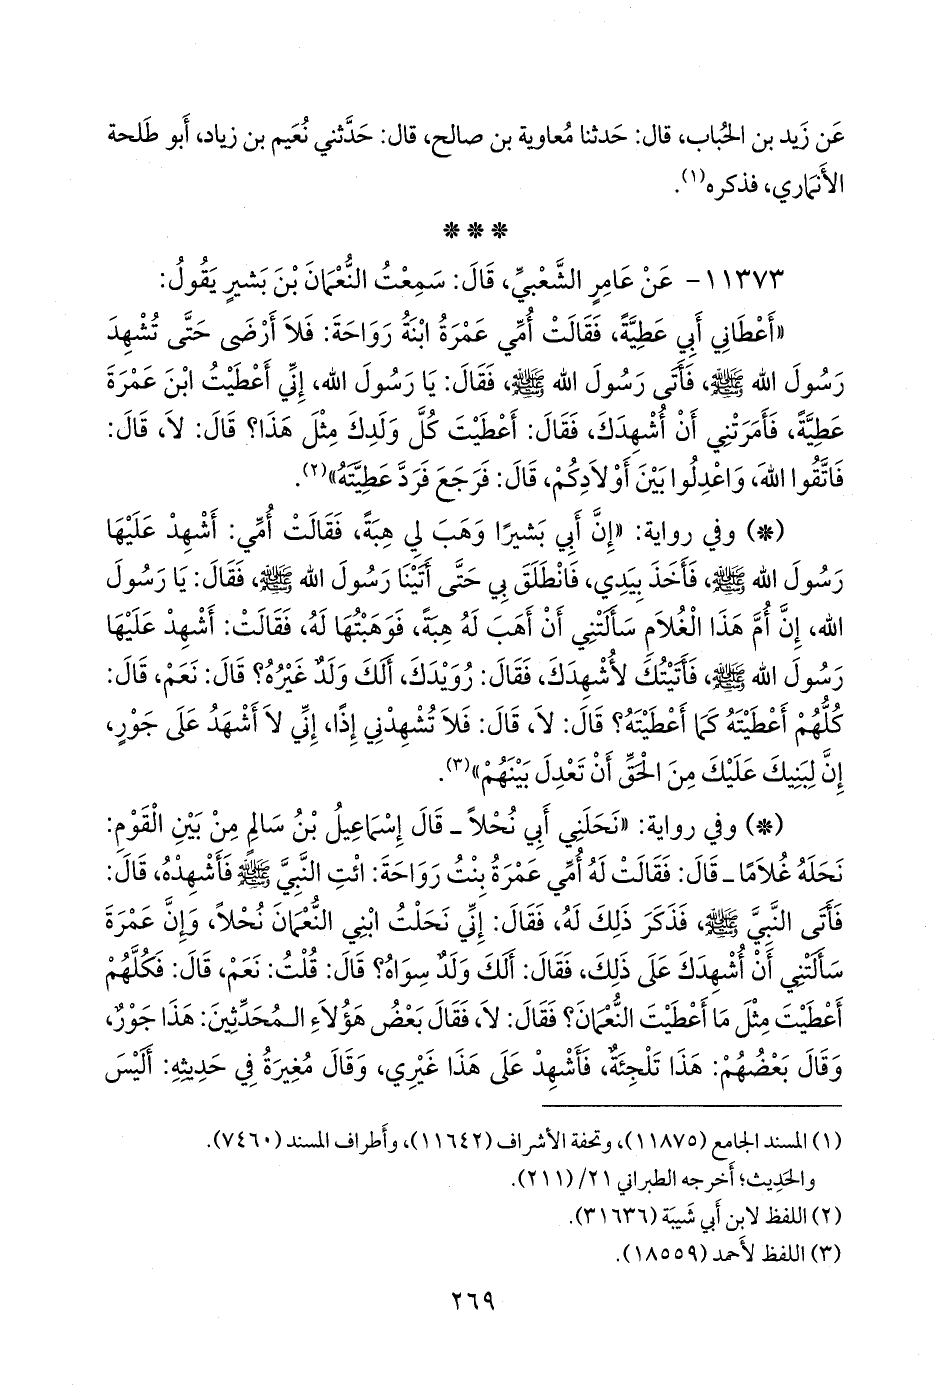 عَن زَيد بن الحُباب، قال: حَدثنا مُعاوية بن صالح، قال: حَدَّثني نُعَيم بن زياد، أَبو طَلحة
الأَنماري، فذكره(١).
* * *
١١٣٧٣- عَنْ عَامِرٍ الشَّعْبيِّ، قَالَ: سَمِعْتُ النُّعْمَانَ بْنَ بَشيرٍ يَقُولُ:
«أَعْطَانِي أَبِي عَطِيَّةً، فَقَالَتْ أُمِّي عَمْرَةُ ابْنَةُ رَوَاحَةَ: فَلاَ أَرْضَى حَتَّى تُشْهِدَ
رَسُولَ الله ﷺ، فَأَتَى رَسُولَ الله ﷺ، فَقَالَ: يَا رَسُولَ الله، إِنِّي أَعْطَيْتُ ابْنَ عَمْرَةَ
عَطِيَّةً، فَأَمَرَتْنِي أَنْ أُشْهِدَكَ، فَقَالَ: أَعْطَيْتَ كُلَّ وَلَدِكَ مِثْلَ هَذَا؟ قَالَ: لاَ، قَالَ:
فَاتَّقُوا اللهَ، وَاعْدِلُوا بَيْنَ أَوْلاَدِكُمْ، قَالَ: فَرَجَعَ فَرَدَّ عَطِيَّتَهُ»(٢).
(*) وفي رواية: «إِنَّ أَبِي بَشيرًا وَهَبَ لِي هِبَةً، فَقَالَتْ أُمِّي: أَشْهِدْ عَلَيْهَا
رَسُولَ الله ﷺ، فَأَخَذَ بِيَدِي، فَانْطَلَقَ بِي حَتَّى أَتَيْنَا رَسُولَ الله ﷺ، فَقَالَ: يَا رَسُولَ
الله، إِنَّ أُمَّ هَذَا الْغُلاَمِ سَأَلَتْنِي أَنْ أَهَبَ لَهُ هِبَةً، فَوَهَبْتُهَا لَهُ، فَقَالَتْ: أَشْهِدْ عَلَيْهَا
رَسُولَ الله ﷺ، فَأَتَيْتُكَ لأُشْهِدَكَ، فَقَالَ: رُوَيْدَكَ، أَلَكَ وَلَدٌ غَيْرُهُ؟ قَالَ: نَعَمْ، قَالَ:
كُلُّهُمْ أَعْطَيْتَهُ كَمَا أَعْطَيْتَهُ؟ قَالَ: لاَ، قَالَ: فَلاَ تُشْهِدْنِي إِذًا، إِنِّي لاَ أَشْهَدُ عَلَى جَوْرٍ،
إِنَّ لِبَنِيكَ عَلَيْكَ مِنَ الْحَقِّ أَنْ تَعْدِلَ بَيْنَهُمْ»(٣).
(*) وفي رواية: «نَحَلَنِي أَبِي نُحْلاً ـ قَالَ إِسْمَاعِيلُ بْنُ سَالِمٍ مِنْ بَيْنِ الْقَوْمِ:
نَحَلَهُ غُلاَمًا ـ قَالَ: فَقَالَتْ لَهُ أُمِّي عَمْرَةُ بِنْتُ رَوَاحَةَ: ائْتِ النَّبِيَّ ﷺ فَأَشْهِدْهُ، قَالَ:
فَأَتَى النَّبِيَّ ﷺ، فَذَكَرَ ذَلِكَ لَهُ، فَقَالَ: إِنِّي نَحَلْتُ ابْنِي النُّعْمَانَ نُحْلاً، وَإِنَّ عَمْرَةَ
سَأَلَتْنِي أَنْ أُشْهِدَكَ عَلَى ذَلِكَ، فَقَالَ: أَلَكَ وَلَدٌ سِوَاهُ؟ قَالَ: قُلْتُ: نَعَمْ، قَالَ: فَكُلَّهُمْ
أَعْطَيْتَ مِثْلَ مَا أَعْطَيْتَ النُّعْمَانَ؟ فَقَالَ: لاَ، فَقَالَ بَعْضُ هَؤُلاَءِ الـمُحَدِّثِينَ: هَذَا جَوْرٌ،
وَقَالَ بَعْضُهُمْ: هَذَا تَلْجِئَةٌ، فَأَشْهِدْ عَلَى هَذَا غَيْرِي، وَقَالَ مُغِيرَةُ فِي حَدِيثِهِ: أَلَيْسَ
(١) المسند الجامع (١١٨٧٥)، وتحفة الأشراف (١١٦٤٢)، وأَطراف المسند (٧٤٦٠).
والحَدِيث؛ أَخرجه الطبراني ٢١/ (٢١١).
(٢) اللفظ لابن أَبي شَيبَة (٣١٦٣٦).
(٣) اللفظ لأَحمد (١٨٥٥٩).
٢٦٩